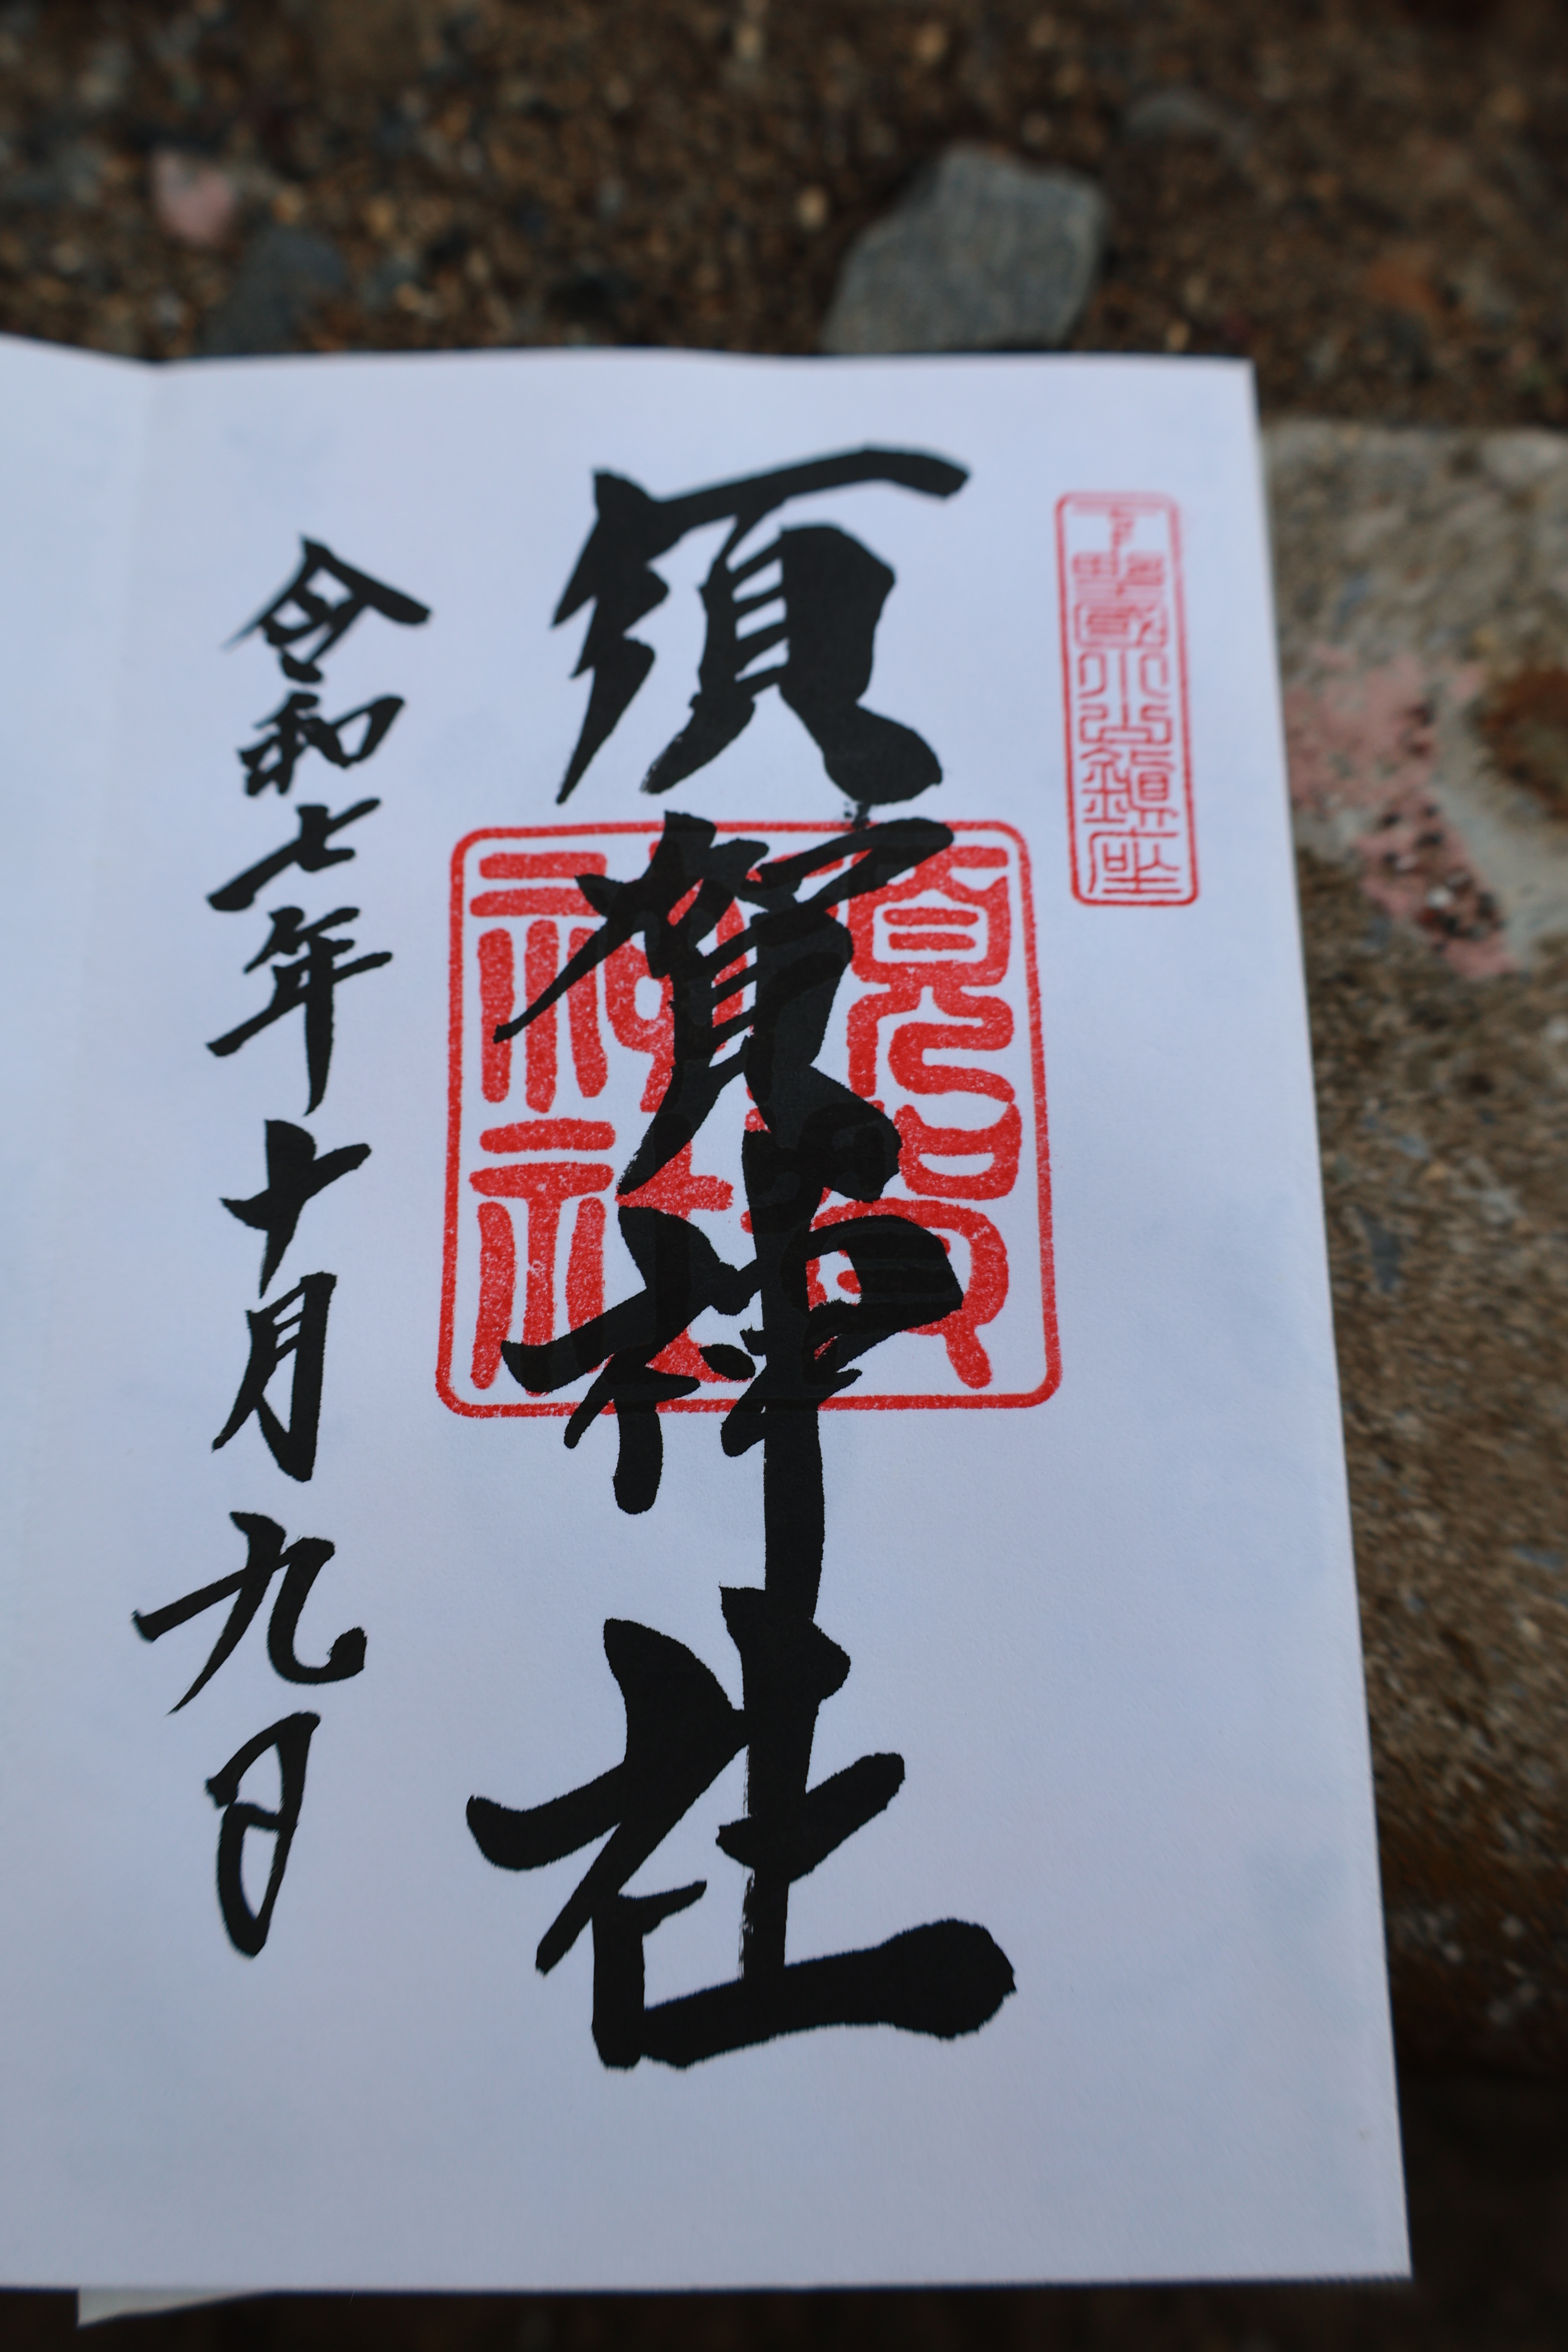 下野國小山鎮座
須賀神社
須賀神社
令和七年十月九日